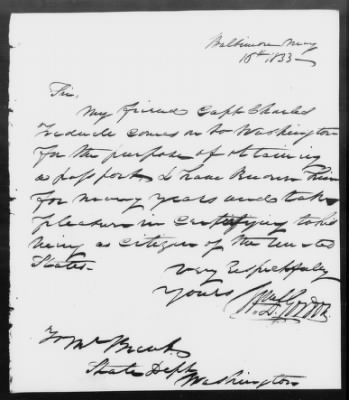 Baltimore May
16th 1833
Sir,
My friend Capt Charles
comes on to Washington
for the purpose of obtaining
a passport I have known him
for many years and take
pleasure in certifying to his
being a citizen of the United
States.
Very Respectfully
Yours
Gordon
To Mr
State Dept
Washington